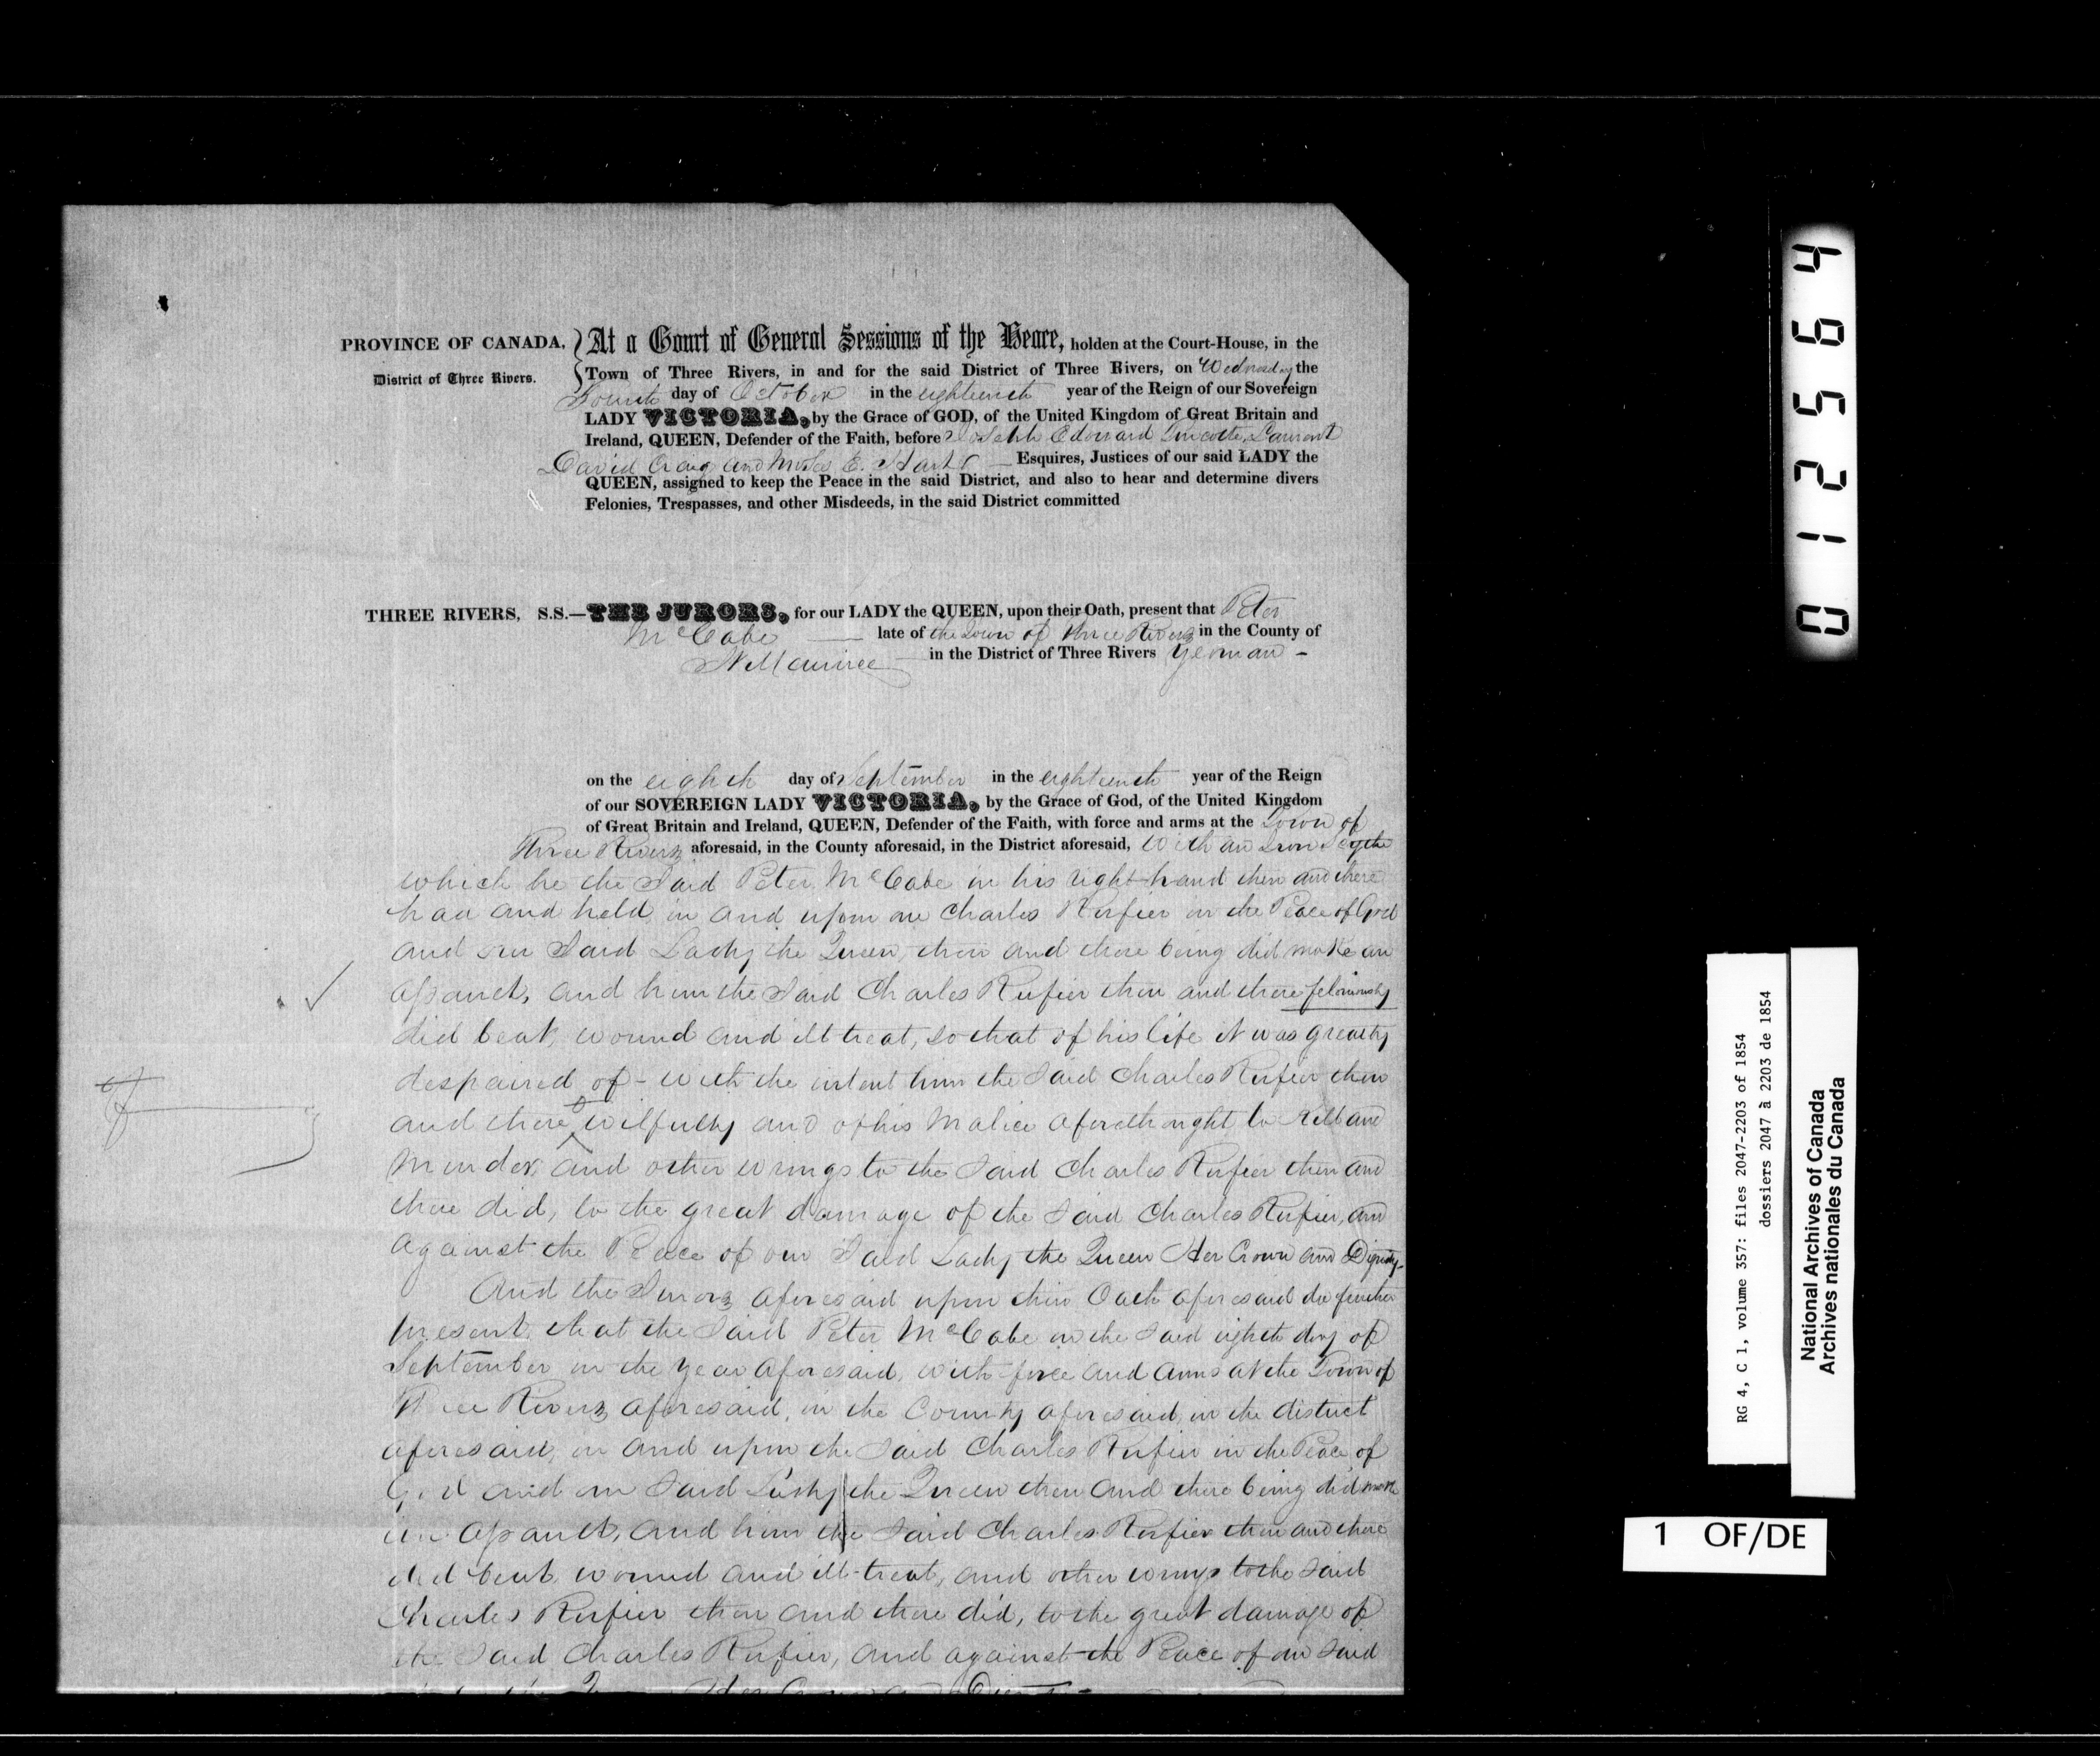 PROVINCE OF CANADA,
District of Three Rivers.
At a Court of General Sessions of the Peace, holden at the Court-House, in the
Town of Three Rivers, in and for the said District of Three Rivers, on Wednesday the
Fourth day of October in the eighteenth year of the Reign of our Sovereign
LADY VICTORIA, by the Grace of GOD, of the United Kingdom of Great Britain and
Ireland, QUEEN, Defender of the Faith, before Joseph Edouard Turcotte, Laurent
David Craig and Moses E. Hart Esquires, Justices of our said LADY the
QUEEN, assigned to keep the Peace in the said District, and also to hear and determine divers
Felonies, Trespasses, and other Misdeeds, in the said District committed
THREE RIVERS, S.S.—THE JURORS, for our LADY the QUEEN, upon their Oath, present that Peter
McCabe — late of the Town of Three Rivers in the County of
St Maurice — in the District of Three Rivers Yeoman -
on the eighth day of September in the eighteenth year of the Reign
of our SOVEREIGN LADY VICTORIA, by the Grace of God, of the United Kingdom
of Great Britain and Ireland, QUEEN, Defender of the Faith, with force and arms at the Town of
Three Rivers aforesaid, in the County aforesaid, in the District aforesaid, With an Iron Scythe
which he the Said Peter McCabe in his right hand then and there
had and held, in and upon one Charles Rufier in the Peace of God
and our Said Lady the Queen, then and there being did make an
assault, and him the Said Charles Rufier then and there feloniously
did beat, wound and ill treat, so that of his life it was greatly
despaired of - with the intent him the Said Charles Rufier then
and there wilfully and of his Malice aforethought to Kill and
Murder, and other wrongs to the Said Charles Rufier then and
there did, to the great damage of the Said Charles Rufier, and
against the Peace of our Said Lady the Queen Her Crown and Dignity-
And the Jurors aforesaid upon their Oath aforesaid do further
present, that the Said Peter McCabe on the Said eighth day of
September in the Year aforesaid, with force and arms at the Town of
Three Rivers aforesaid, in the County aforesaid, in the district
aforesaid, in and upon the Said Charles Rufier in the Peace of
God and our Said Lady the Queen then and there being did make
an assault, and him the Said Charles Rufier then and there
did beat, wound and ill-treat, and other wrongs to the Said
Charles Rufier then and there did, to the great damage of
the Said Charles Rufier, and against the Peace of our Said
Queen Her Crown and
012564
RG 4, C 1, volume 357: files 2047-2203 of 1854
dossiers 2047 à 2203 de 1854
National Archives of Canada
Archives nationales du Canada
1 OF/DE